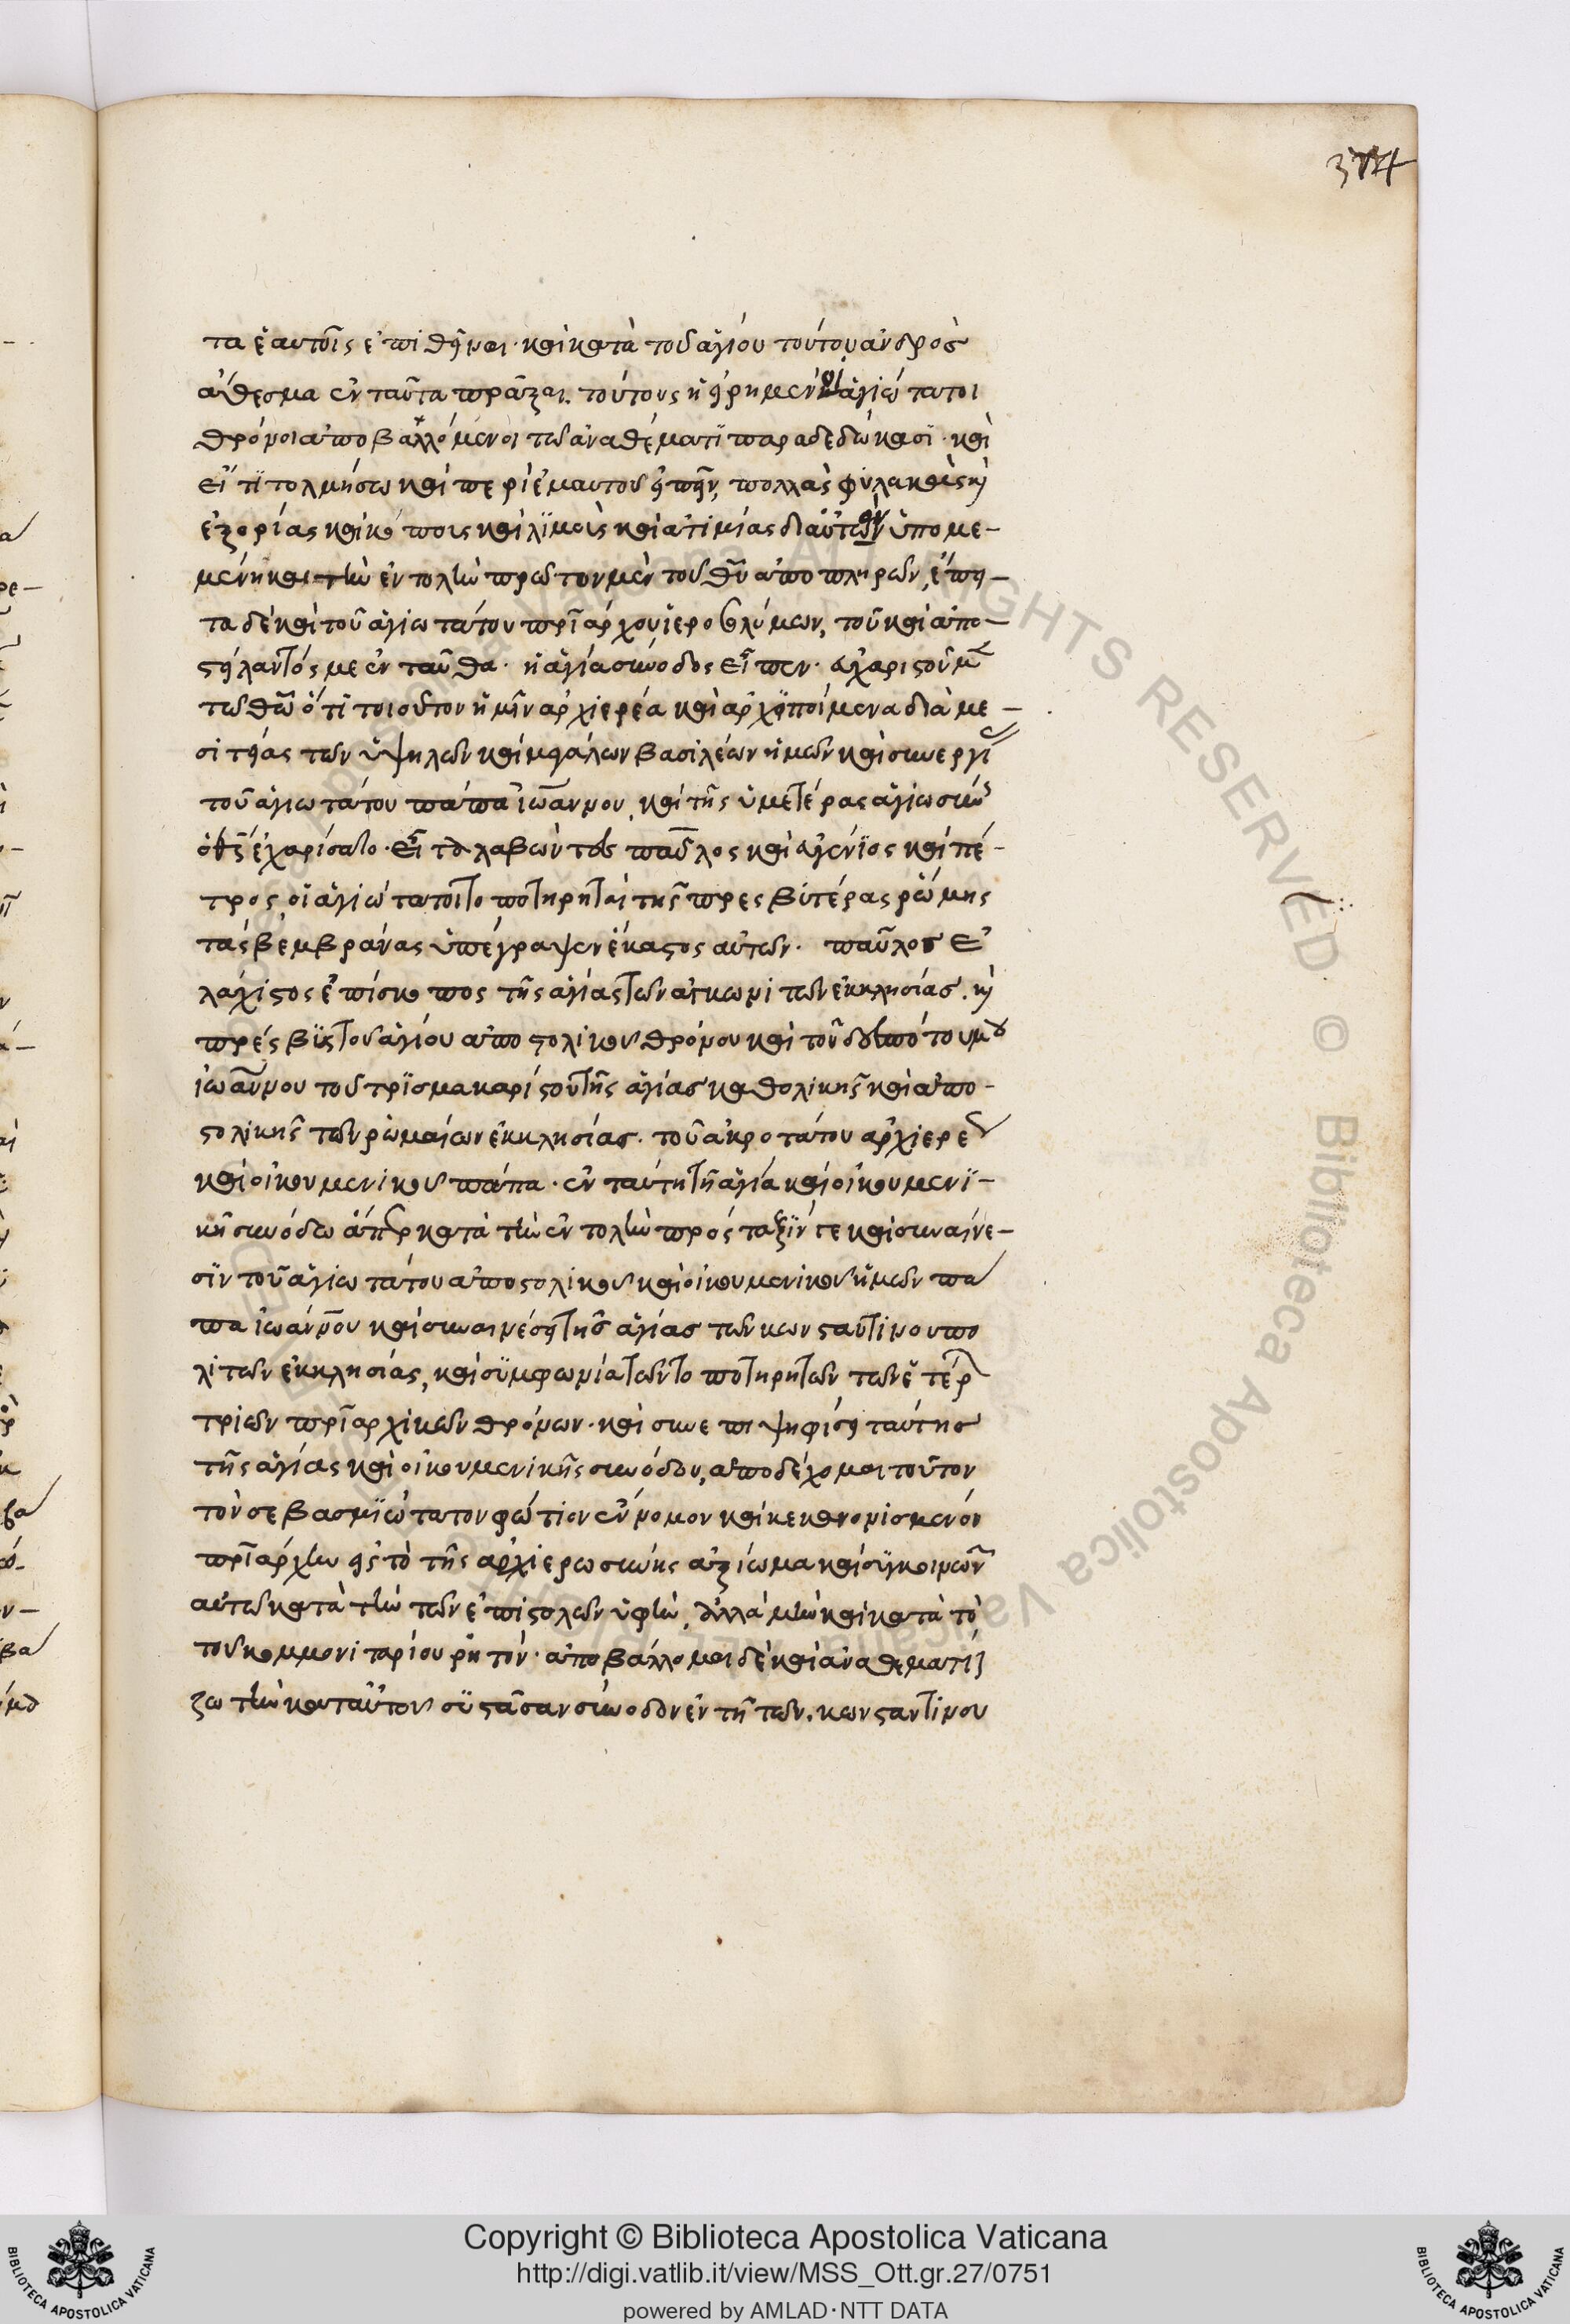 374
τα ἑαυτοῖς ἐπιθεῖναι· καὶ κατὰ τοῦ ἁγίου τούτου ἀνδρὸς
ἄθεσμα ἐνταῦτα πρᾶξαι. τούτους εἰρημένοι ἁγιώτατοι
θρόνοι ἀποβαλλόμενοι τῷ ἀναθέματι παραδεδώκασι· καὶ
εἴ τι τολμήσω καὶ περὶ ἐμαυτοῦ εἰπεῖν, πολλὰς φυλακὰς καὶ
ἐξορίας καὶ κόποις καὶ λιμοῖς καὶ ἀτιμίας δι' αὐτὸν ὑπομε-
μένηκα τὴν ἐντολὴν πρῶτον μὲν τοῦ θῦ ἀποπληρῶν, ἔπει-
τα δὲ καὶ τοῦ ἁγιωτάτου πρϊάρχου ἱεροσολύμων, τοῦ καὶ ἀπο-
στείλαντός με ἐνταῦθα· ἡ ἁγία σύνοδος εἶπεν· εὐχαριστοῦμεν
τῷ θῶ ὅτι τοιοῦτον ἡμῖν ἀρχιερέα καὶ ἀρχιποίμενα διὰ με-
σιτείας τῶν ὑψηλῶν καὶ μεγάλων βασιλέων ἡμῶν καὶ συνεργί
τοῦ ἁγιωτάτου πάπα ἰωάννου, καὶ τῆς ὑμετέρας ἁγιωσύν
ὁ θς ἐχαρίσατο· εἶτα λαβόντες παῦλος καὶ εὐγένιος καὶ πέ-
τρος οἱ ἁγιώτατοι τοποτηρηταὶ τῆς πρεσβυτέρας ῥώμης
τὰς βεμβράνας ὑπέγραψεν ἕκαστος αὐτῶν· παῦλος ἐ
λάχιστος ἐπίσκοπος τῆς ἁγίας τῶν ἀγκωνιτῶν ἐκκλησίας. καὶ
πρέσβυς τοῦ ἁγίου ἀποστολικοῦ θρόνου καὶ τοῦ δεσπότου μου
ἰωάννου τοῦ τρισμακαρίστου τῆς ἁγίας καθολικῆς καὶ ἀπο-
στολικῆς τῶν ῥωμαίων ἐκκλησίας. τοῦ ἀκροτάτου ἀρχιερε
καὶ οἰκουμενικοῦ πάπα· ἐν ταύτῃ τῇ ἁγίᾳ καὶ οἰκουμενι-
κῇ συνόδῳ ἅπερ κατὰ τὴν ἐντολὴν πρόσταξίν τε καὶ συναίνε-
σιν τοῦ ἁγιωτάτου ἀποστολικοῦ καὶ οἰκουμενικοῦ ἡμῶν πα
πα ἰωάννου καὶ συναινέσει τῆς ἁγίας τῶν κωνσταντινουπο
λιτῶν ἐκκλησίας, καὶ συμφωνία τῶν τοποτηρητῶν τῶν ἑτέρ
τριῶν πρϊαρχικῶν θρόνων· καὶ συνεπιψηφίσει ταύτης
τῆς ἁγίας καὶ οἰκουμενικῆς συνόδου, ἀποδέχομαι τοῦτον
τὸν σεβασμιώτατον φώτιον ἔννομον καὶ κεκανονισμένον
πρϊάρχην εἰς τὸ τῆς ἀρχιερωσύνης ἀξίωμα καὶ συγκοινων
αὐτῶ κατὰ τὴν τῶν ἐπιστολῶν ὑφὴν, ἀλλὰ μὴν καὶ κατὰ τὸ
τοῦ κομμονιταρίου ῥητόν· ἀποβάλλομαι δὲ καὶ ἀναθεματί
ζω τὴν κατ' αὐτοῦ συστᾶσαν σύνοδον ἐν τῇ τῶν κωνσταντινου
Copyright © Biblioteca Apostolica Vaticana
http://digi.vatlib.it/view/MSS_Ott.gr.27/0751
powered by AMLAD·NTT DATA